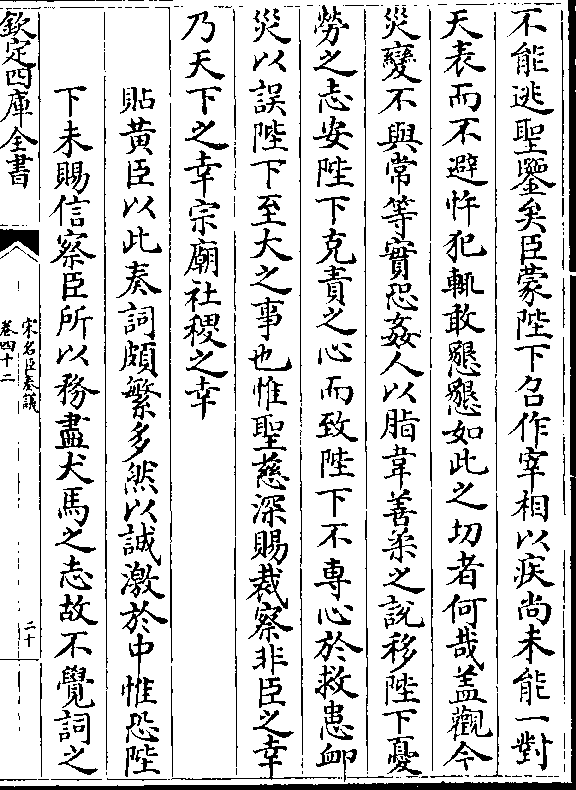 不能逃聖鑒矣臣蒙陛下召作宰相以疾尚未能一對
天表而不避忤犯輒敢懇懇如此之切者何哉盖觀今
災變不與常等實恐姦人以脂韋善柔之說移陛下憂
勞之志安陛下克責之心而致陛下不專心於救患卹
災以誤陛下至大之事也惟聖慈深賜裁察非臣之幸
乃天下之幸宗廟社稷之幸
貼黃臣以此奏詞頗繁多然以誠激於中惟恐陛
下未賜信察臣所以務盡犬馬之志故不覺詞之
欽定四庫全書
宋名臣奏議
卷四十二
二十